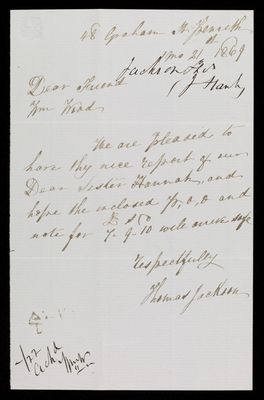 48 Graham St Penrith
1 mo 21st 1869
Jackson Thos
(J Hank)
Dear Friend
Wm Wood
We are pleased to
have thy nice report of our
Dear Sister Hannah, and
hope the inclosed P, o, o and
£ s d
note for 7-9-10 will arrive safe
respectfully
Thomas Jackson
1/22
Ackd